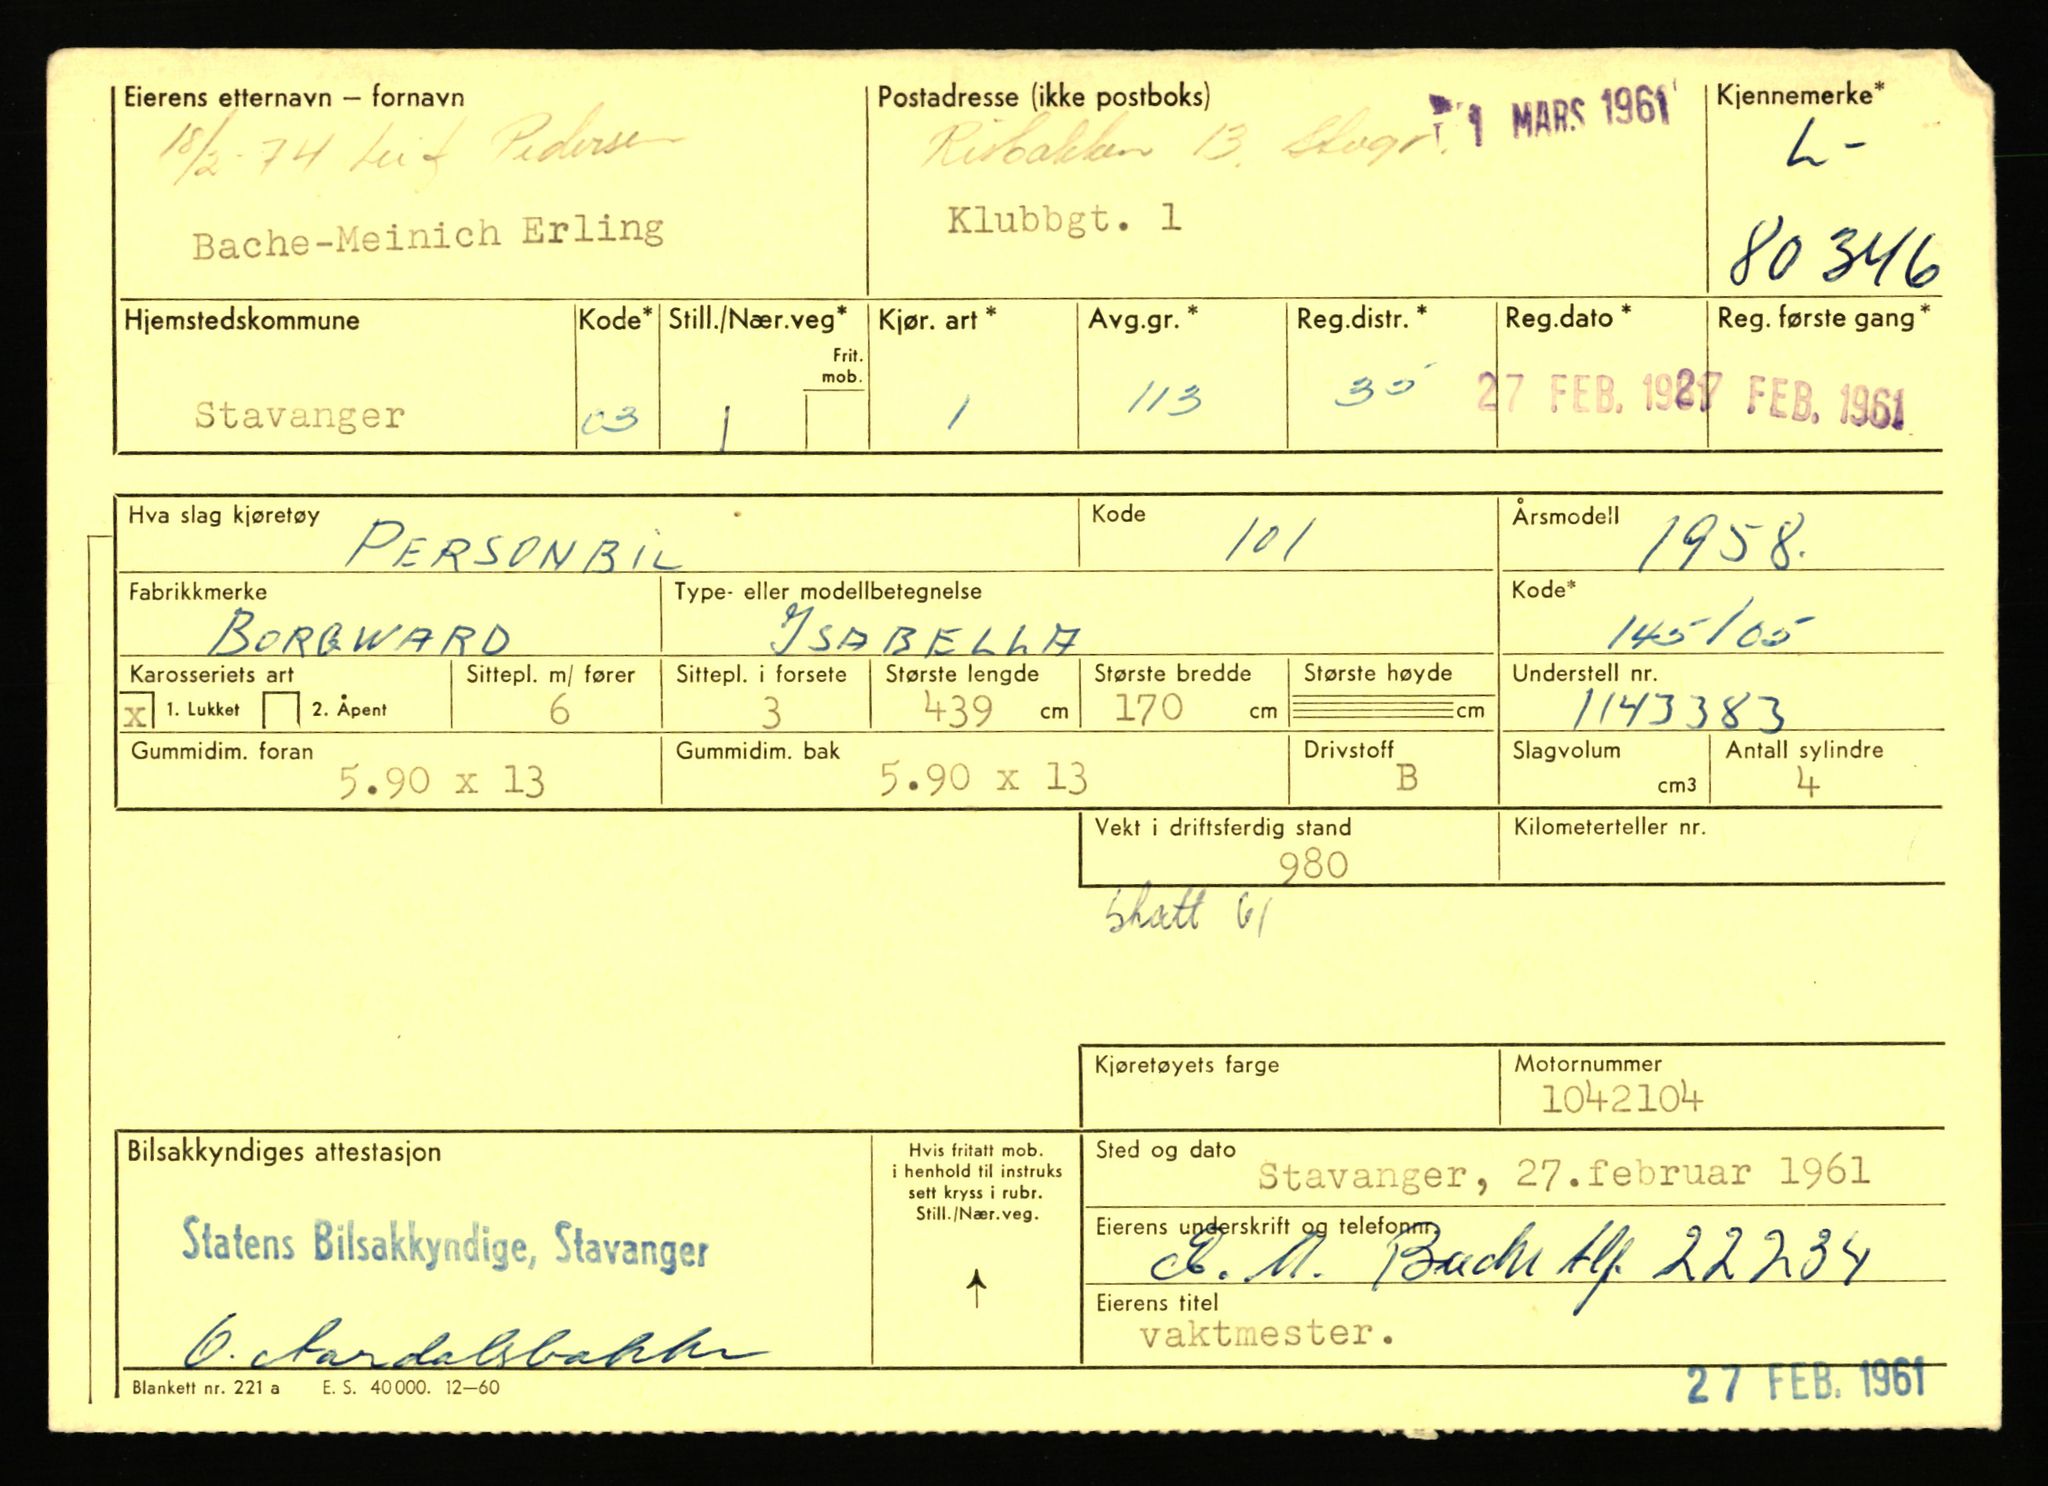 Eierens etternavn – fornavn Postadresse (ikke postboks) 1 MARS 1961 Kjennemerke*
18/2-74 Leif Pedersen 13. Stvgr. L-
Bache-Meinich Erling Klubbgt. 1 80346
Hjemstedskommune Kode* Still./Nær.veg* Kjør. art * Avg.gr. * Reg.distr. * Reg.dato * Reg. første gang *
Frit.
mob.
Stavanger 03 1 1 113 35 27 FEB. 1961 27 FEB. 1961
Hva slag kjøretøy PERSONBIL Kode 101 Årsmodell 1958.
Fabrikkmerke Type- eller modellbetegnelse Kode*
BORGWARD ISABELLA 145/05
Karosseriets art Sittepl. m/ fører Sittepl. i forsete Største lengde Største bredde Største høyde Understell nr.
x 1. Lukket 2. Åpent 6 3 439 cm 170 cm cm 1143383
Gummidim. foran Gummidim. bak Drivstoff Slagvolum Antall sylindre
5.90 x 13 5.90 x 13 B cm3 4
Vekt i driftsferdig stand Kilometerteller nr.
980
Skatt 61
Kjøretøyets farge Motornummer
1042104
Bilsakkyndiges attestasjon
Statens Bilsakkyndige, Stavanger
O. Aardalsbakke
Hvis fritatt mob.
i henhold til instruks
sett kryss i rubr.
Still./Nær.veg.
Sted og dato
Stavanger, 27.februar 1961
Eierens underskrift og telefonnr.
E. M. Bache tlf. 22234
Eierens titel
vaktmester.
27 FEB. 1961
Blankett nr. 221 a E. S. 40 000. 12–60